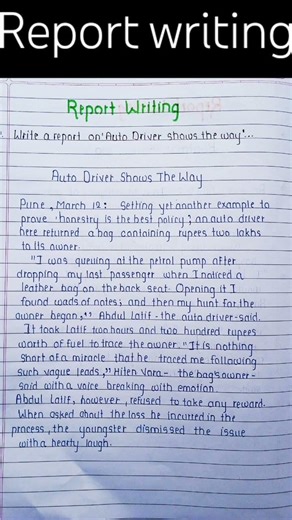 Report writing
Report Writing
Write a report on 'Auto Driver shows the way'...
Auto Driver Shows The Way
Pune, March 12: Setting yet another example to
prove 'honestry is the best policy', an auto driver
here returned a bag containing rupees two lakhs
to its owner.
"I was queuing at the petrol pump after
dropping my last passenger when I noticed a
leather bag on the back seat. Opening it I
found wads of notes; and then my hunt for the
owner began," Abdul Latif - the auto driver-said.
It took Latif two hours and two hundred rupees
worth of fuel to trace the owner. "It is nothing
short of a miracle that he traced me following
such vague leads," Hiten Vora - the bag's owner-
said with a voice breaking with emotion.
Abdul Latif, however, refused to take any reward.
When asked about the loss he incurred in the
process, the youngster dismissed the issue
with a hearty laugh.